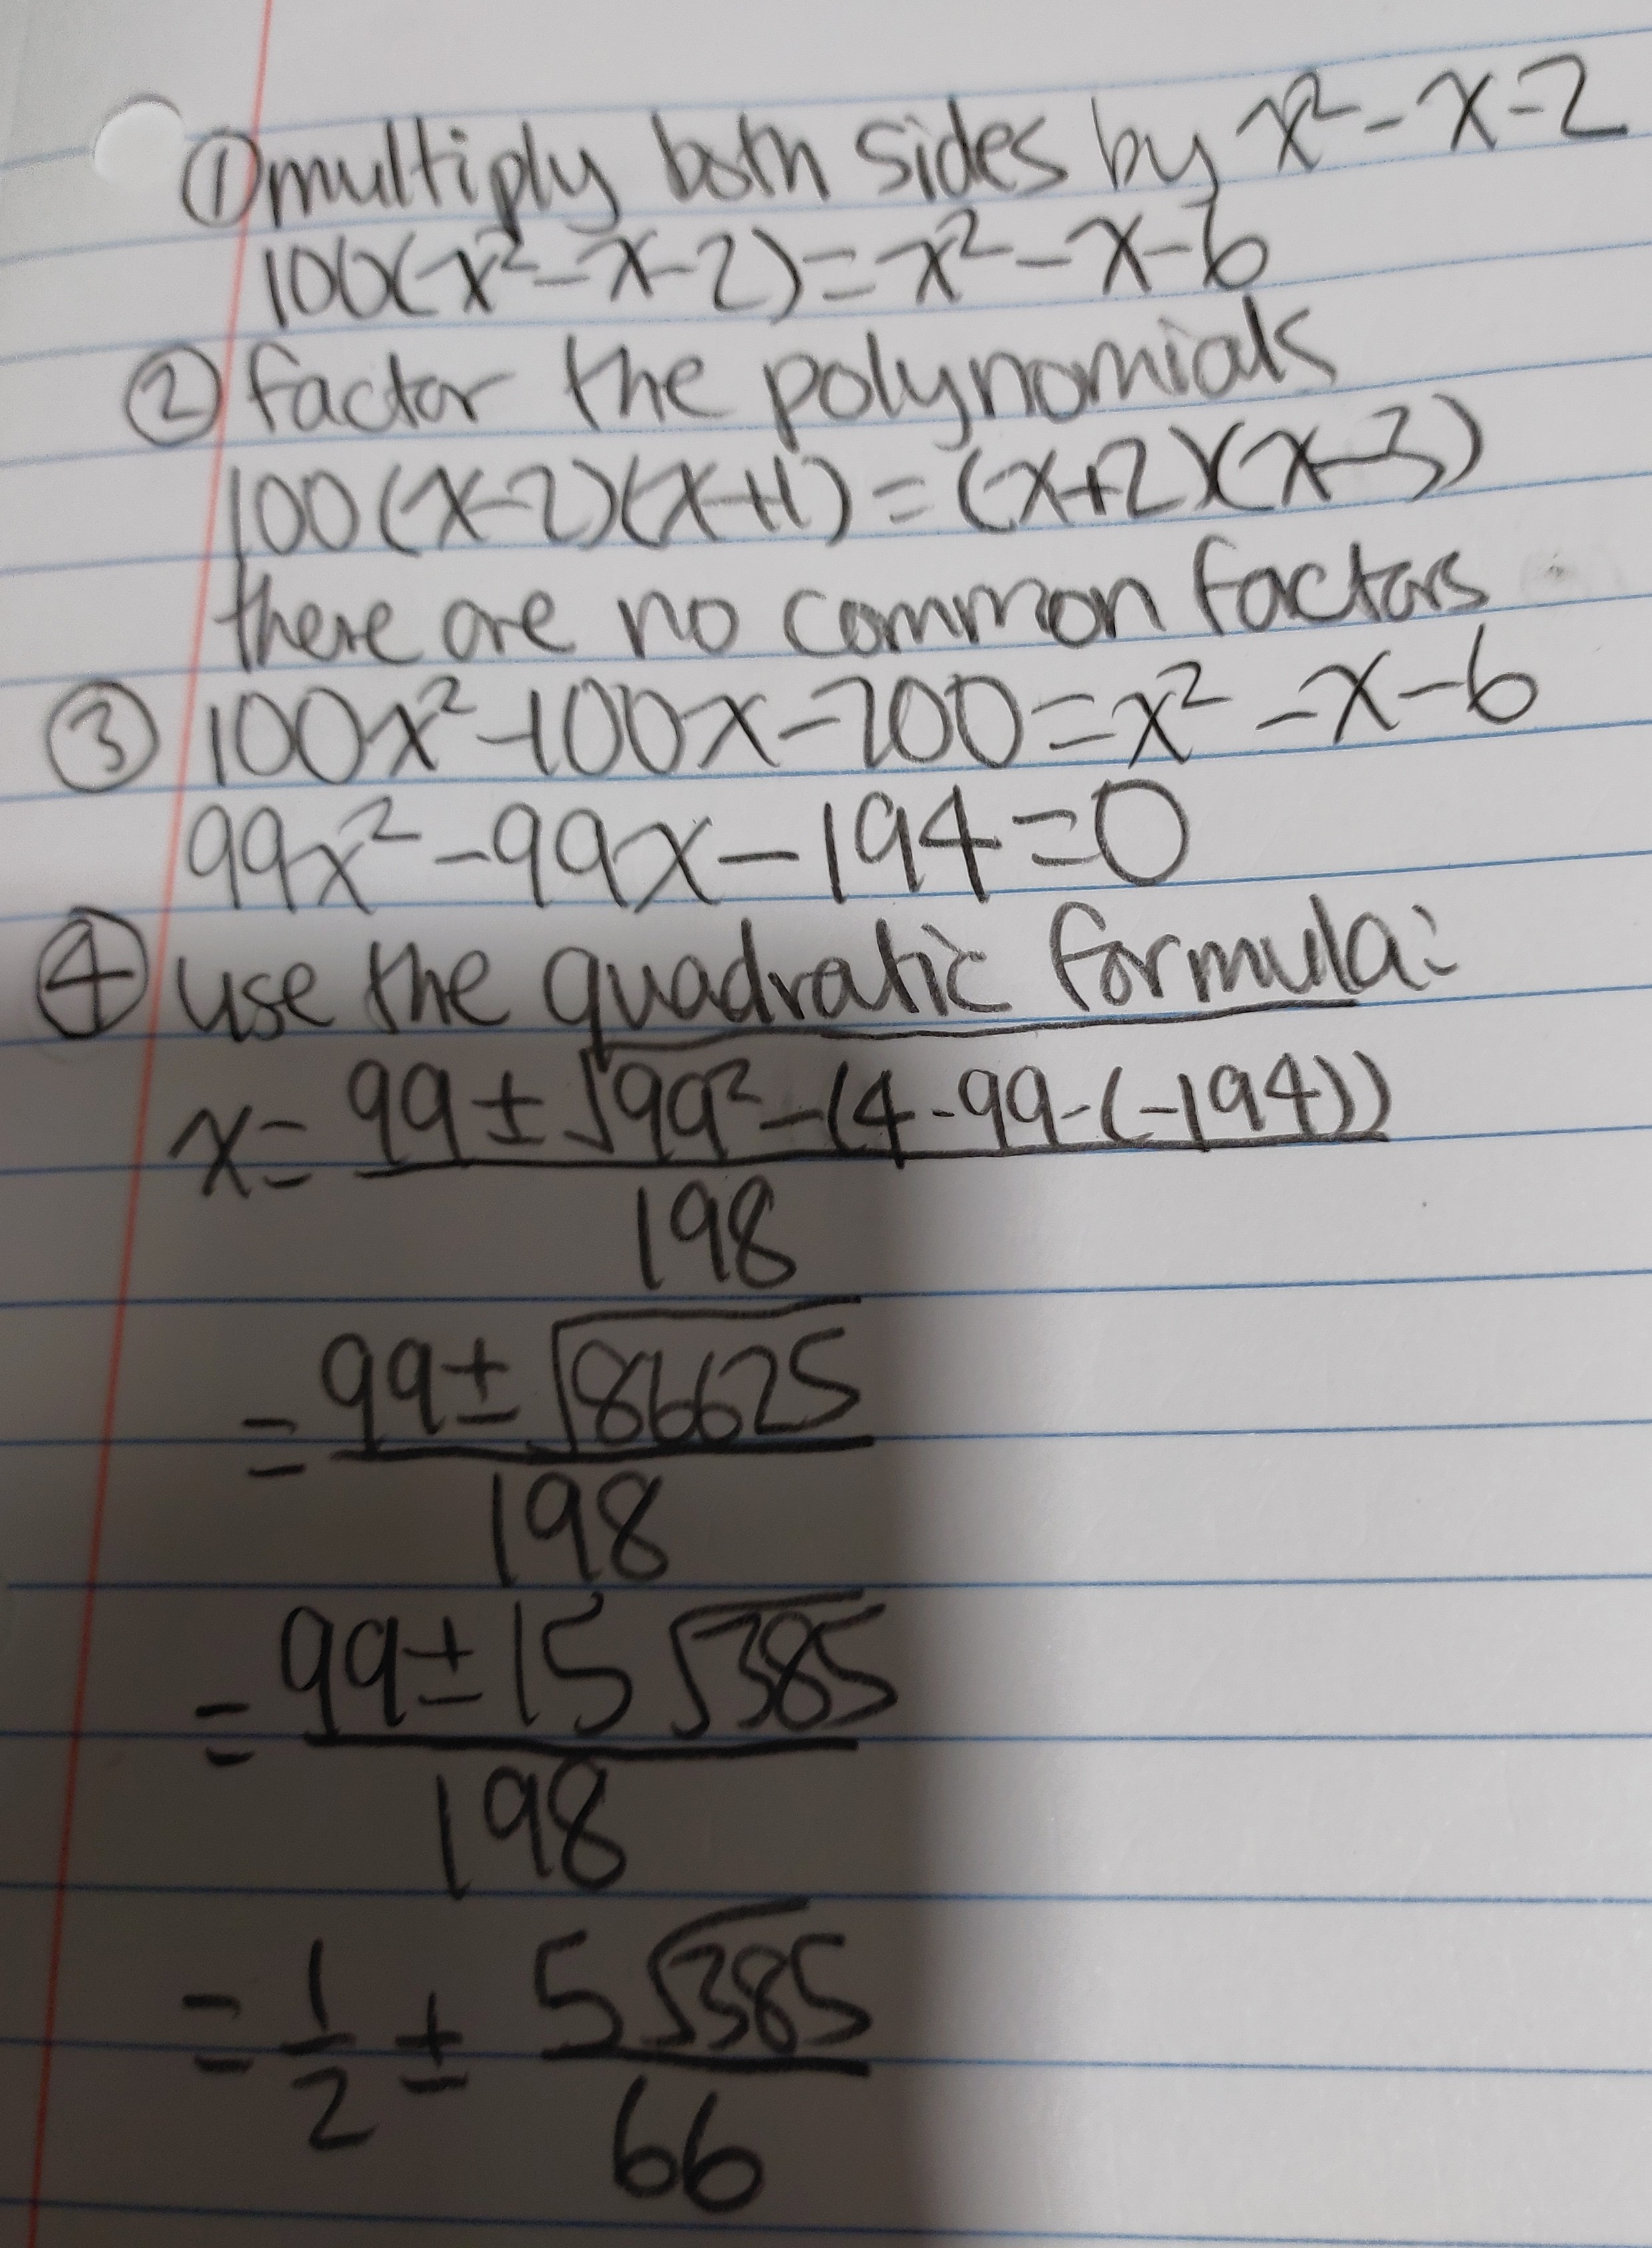 ① multiply both sides by x² - x - 2
100(x² - x - 2) = x² - x - 6
② factor the polynomials
100(x-2)(x+1) = (x+2)(x-3)
there are no common factors
③ 100x² - 100x - 200 = x² - x - 6
99x² - 99x - 194 = 0
④ use the quadratic formula:
x = (99 ± √(99² - (4·99·(-194)))) / 198
= (99 ± √86625) / 198
= (99 ± 15√385) / 198
= 1/2 ± 5√385 / 66